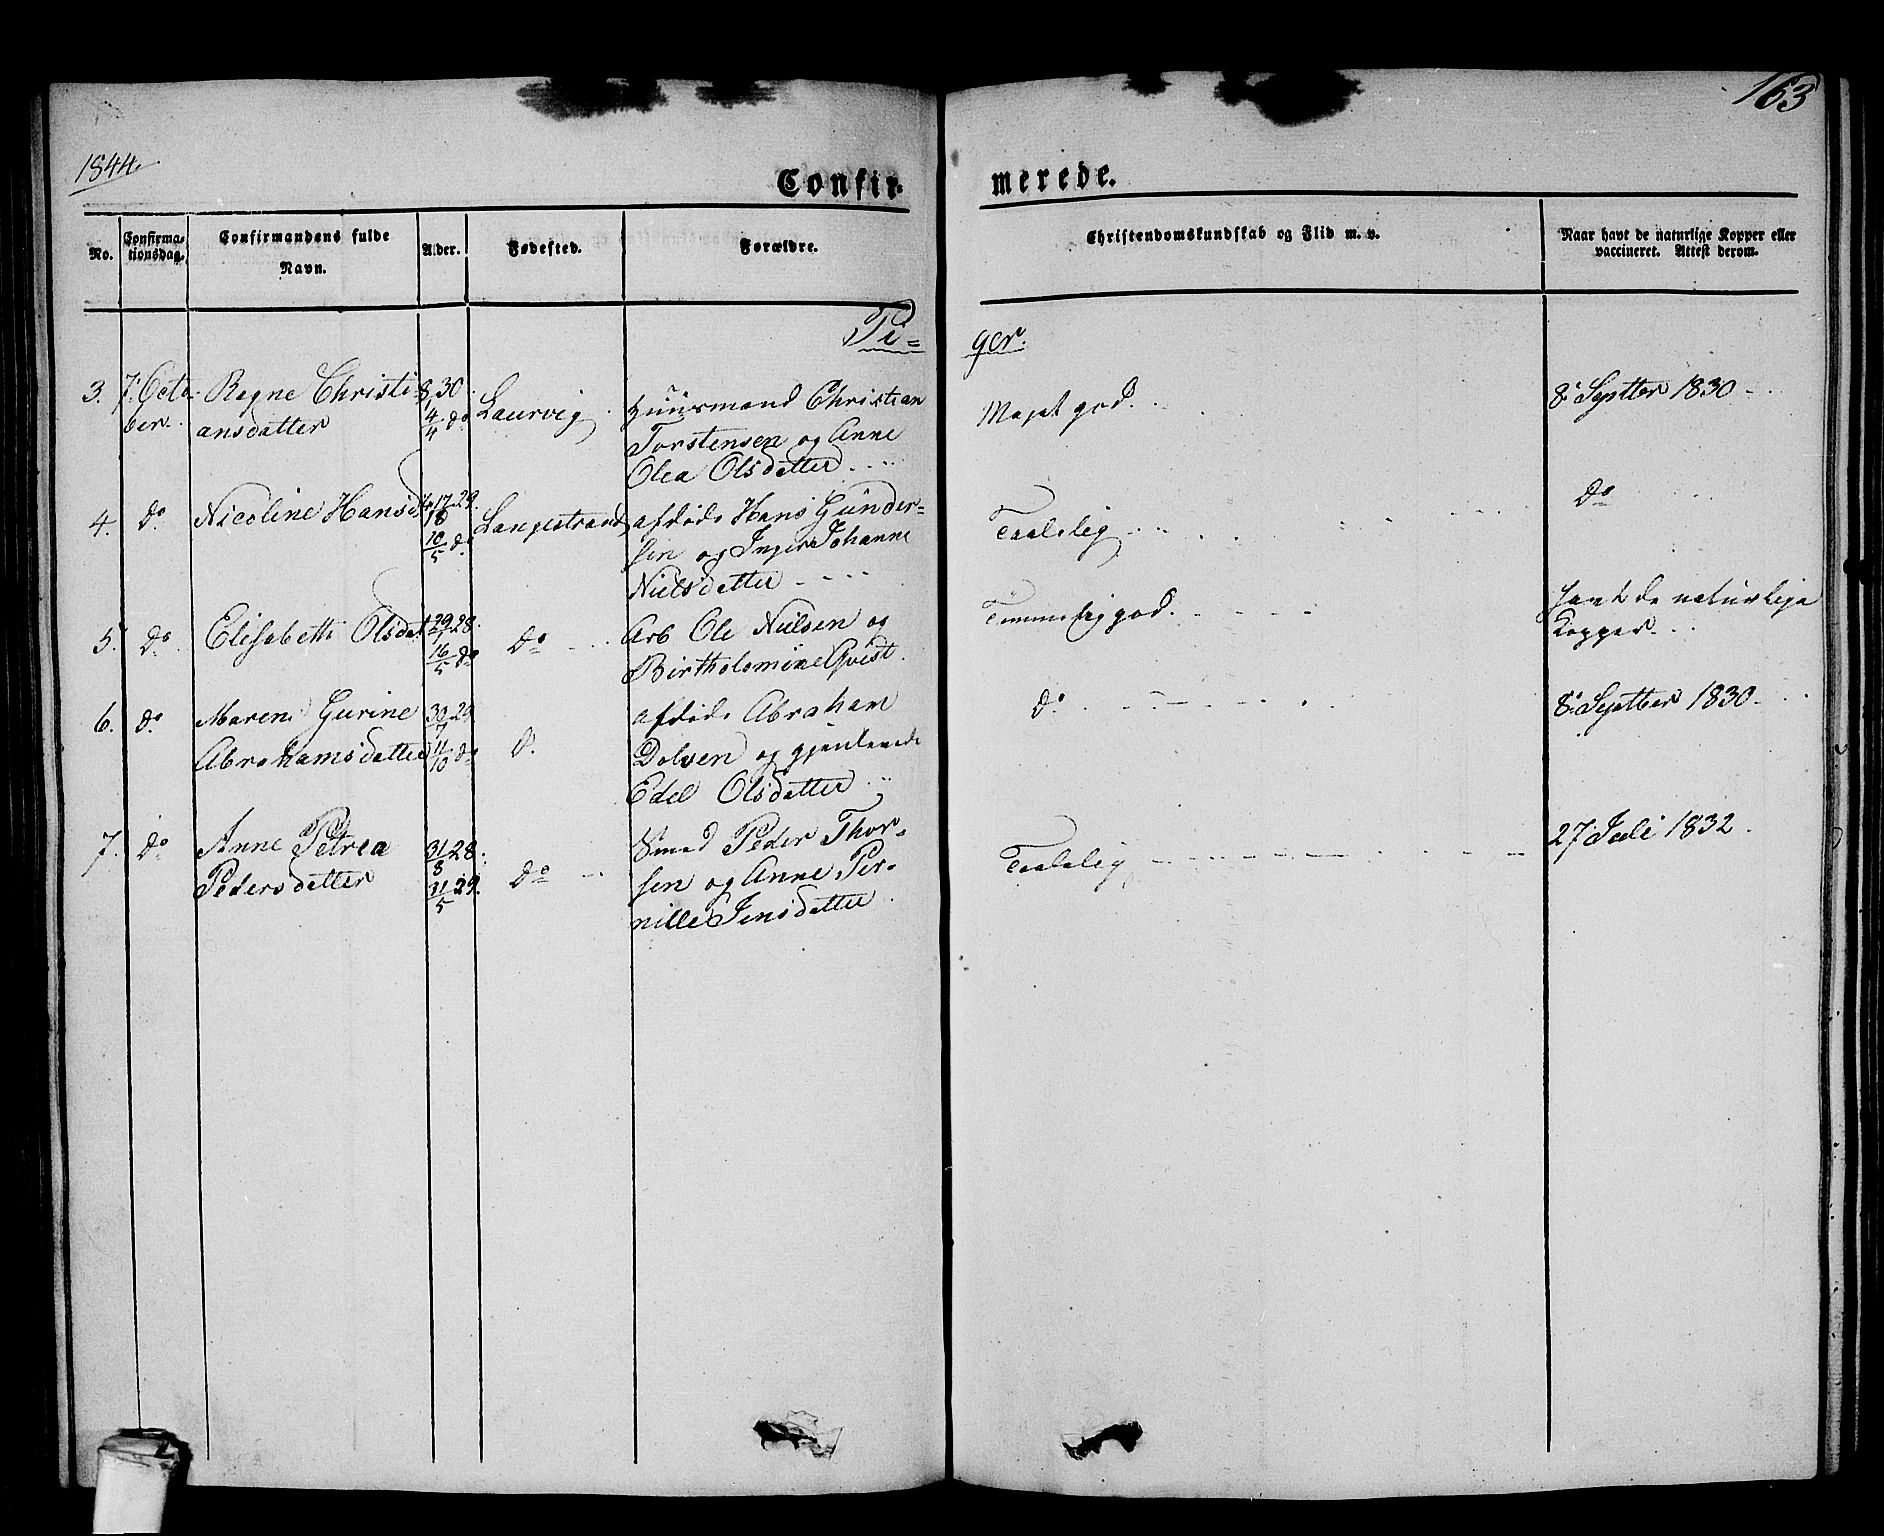 163
1844.
Confir-
merede.
No.
Confirma-
tionsdag.
Confirmandens fulde
Navn.
Alder.
Fødested.
Forældre.
Christendomskundskab og Flid m. v.
Naar havt de naturlige Kopper eller
vaccineret. Attest derom.
Pi=
ger.
3. 7. Octo- Regne Christi- 30 Laurvig Huusmand Christian Meget god. 8. Septber 1830
ber. ansdatter 4/4 do Torstensen og Anne
Olea Olsdatter
4. do Nicoline Hansd 17/10 29. Langestrand, afdøde Hans Gunder- Taalelig do
10/5 do sen og Inger Johanne
Nielsdatter
5. do Elisabeth Olsdat 29/ 28. do Arb Ole Nielsen og Temmelig god. havt de naturlige
16/5 do Birtholomine Qvist. Kopper.
6. do Maren Gurine 30/7 29 d. afdøde Abraham do 8. Septber 1830
Abrahamsdatter 11/10 do Dolven og gjenlevende
Edel Olsdatter
7. do Anne Petrea 31/8 28. do Smed Peder Thor- Taalelig 27 Juli 1832.
Pedersdatter 31/5 29. sen og Anne Per-
nille Jensdatter